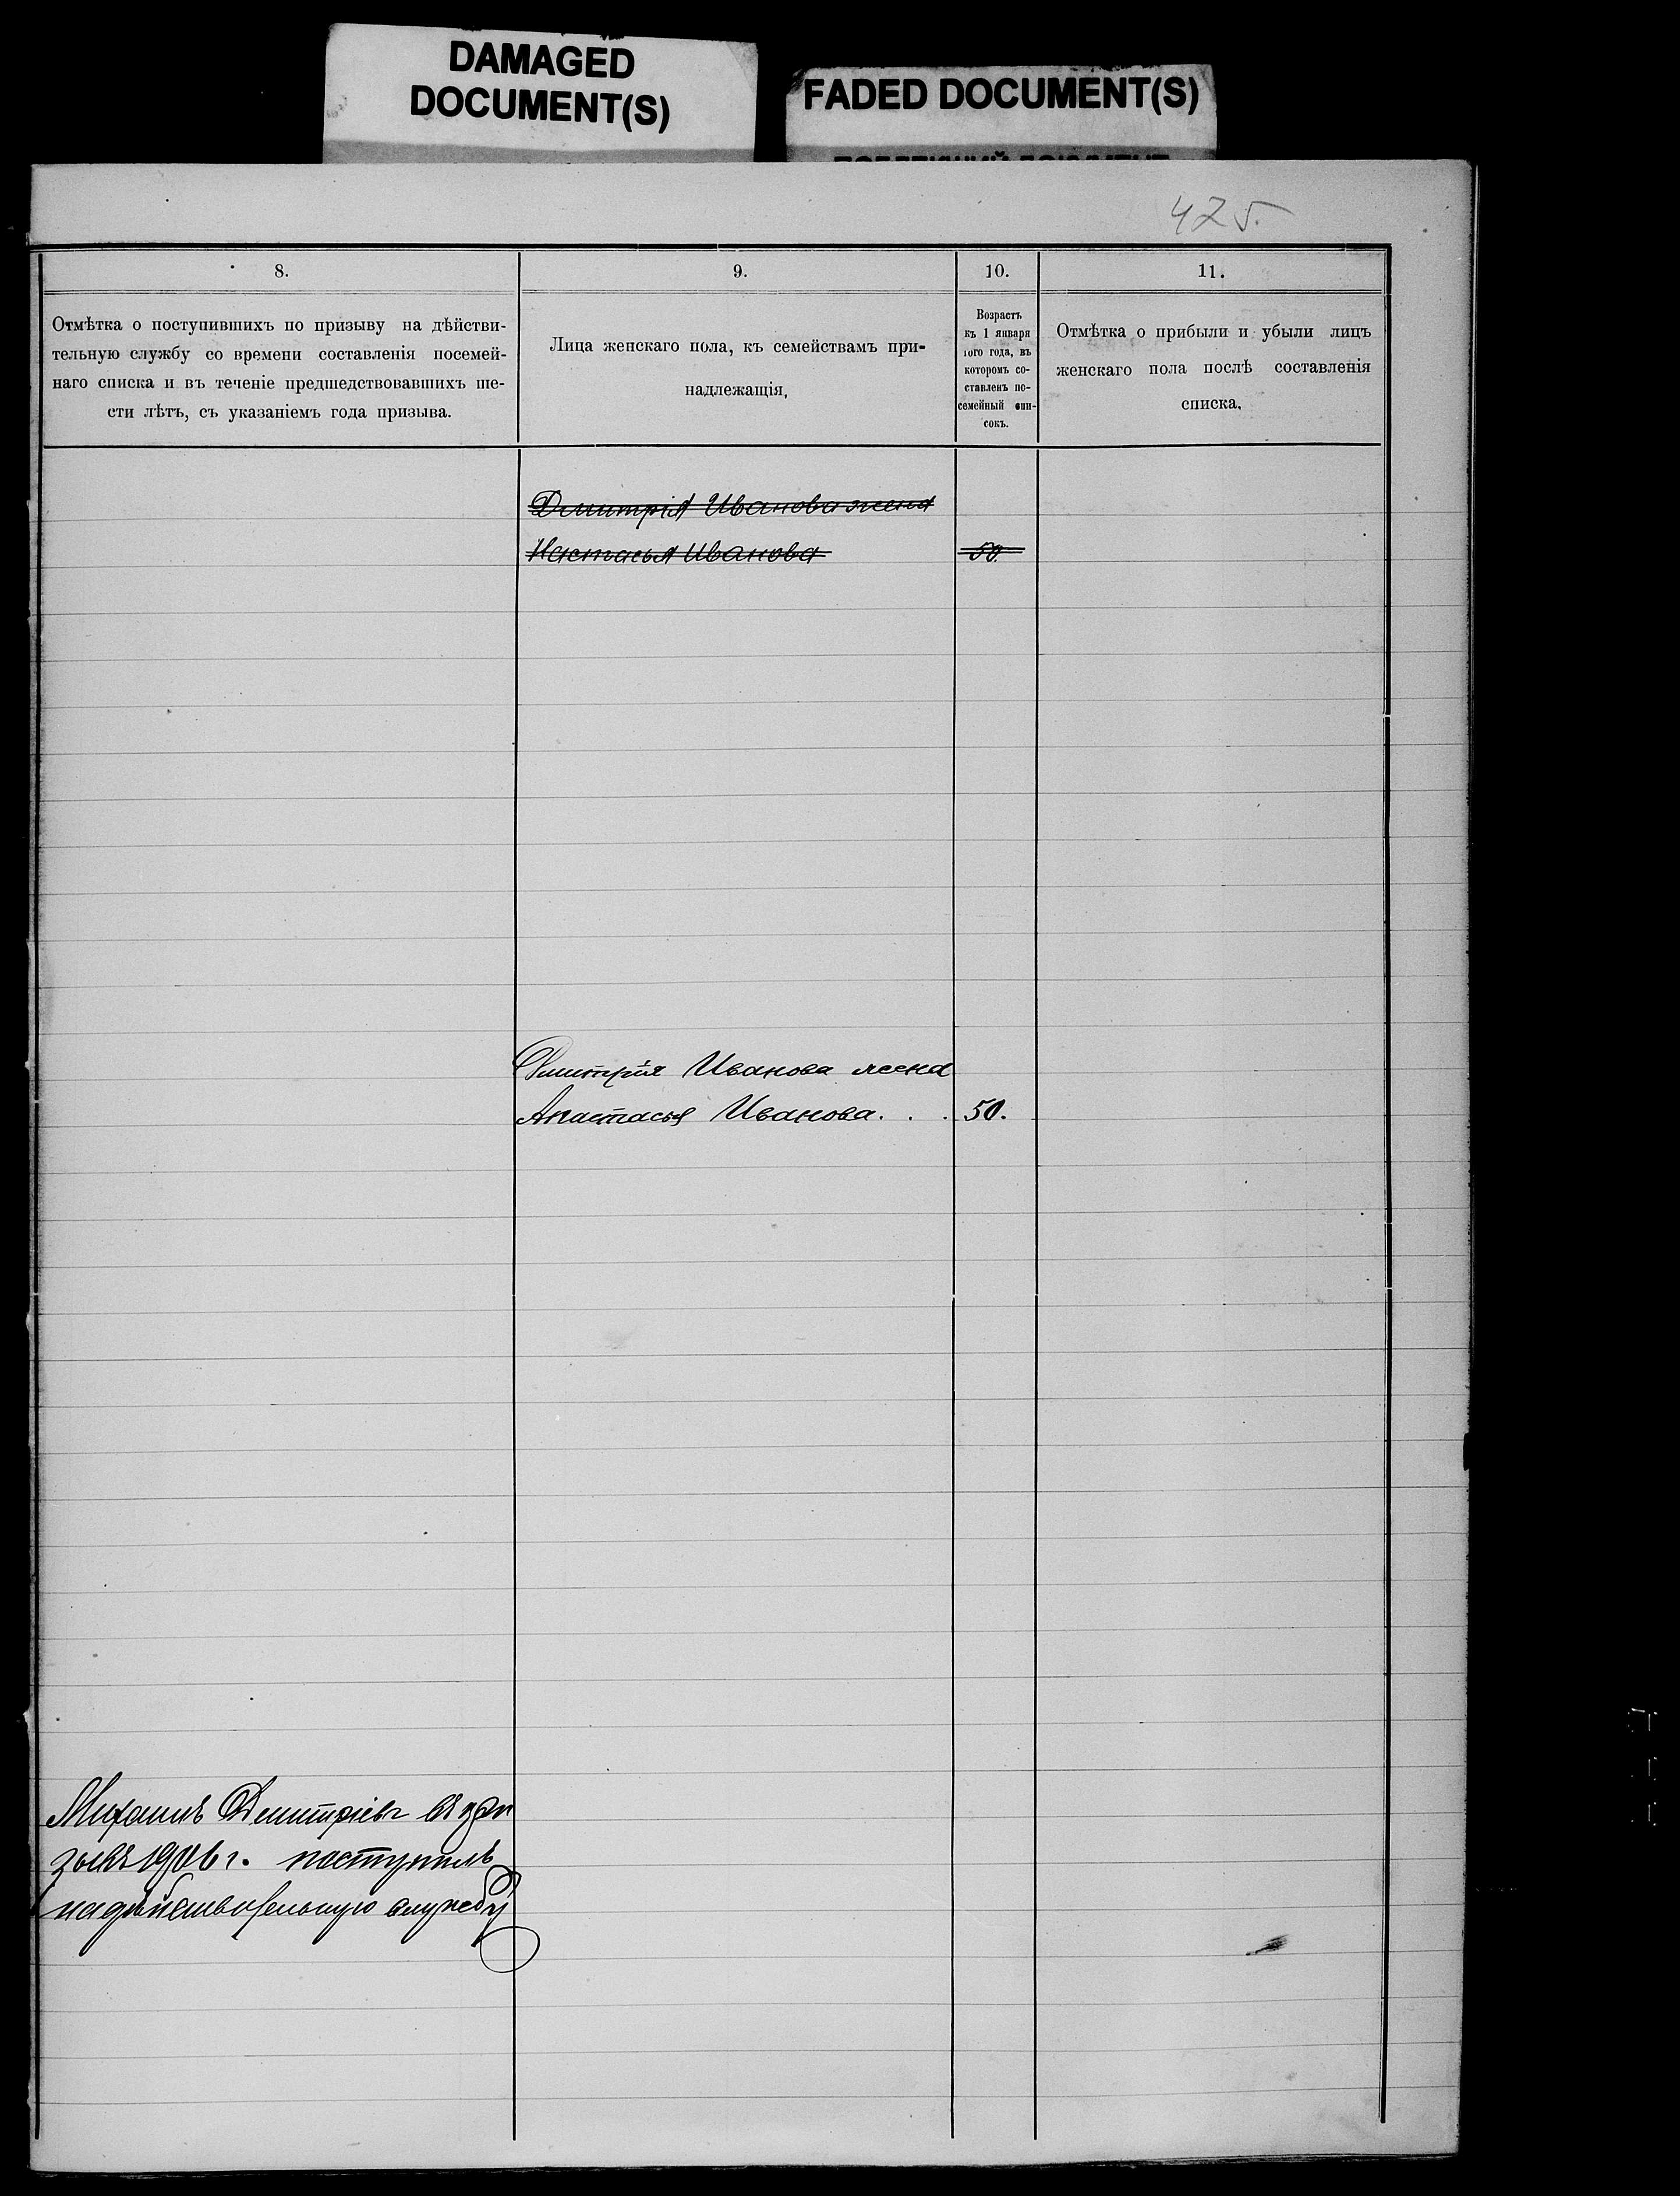 DAMAGED
DOCUMENT(S)
FADED DOCUMENT(S)
425.
8.
Отмѣтка о поступившихъ по призыву на дѣйстви-
тельную службу со времени составленія посемей-
наго списка и въ теченіе предшедствовавшихъ ше-
сти лѣтъ, съ указаніемъ года призыва.
9.
Лица женскаго пола, къ семействамъ при-
надлежащія,
10.
Возрастъ
къ 1 января
того года, въ
которомъ со-
ставленъ по-
семейный спи-
сокъ.
11.
Отмѣтка о прибыли и убыли лицъ
женскаго пола послѣ составленія
списка,
Дмитрія Иванова жена
Настасья Иванова 50.
Дмитрія Иванова жена
Анастасья Иванова. . . 50.
Михаилъ Дмитріевъ въ при
зывѣ 1906 г. поступилъ
на дѣйствительную службу